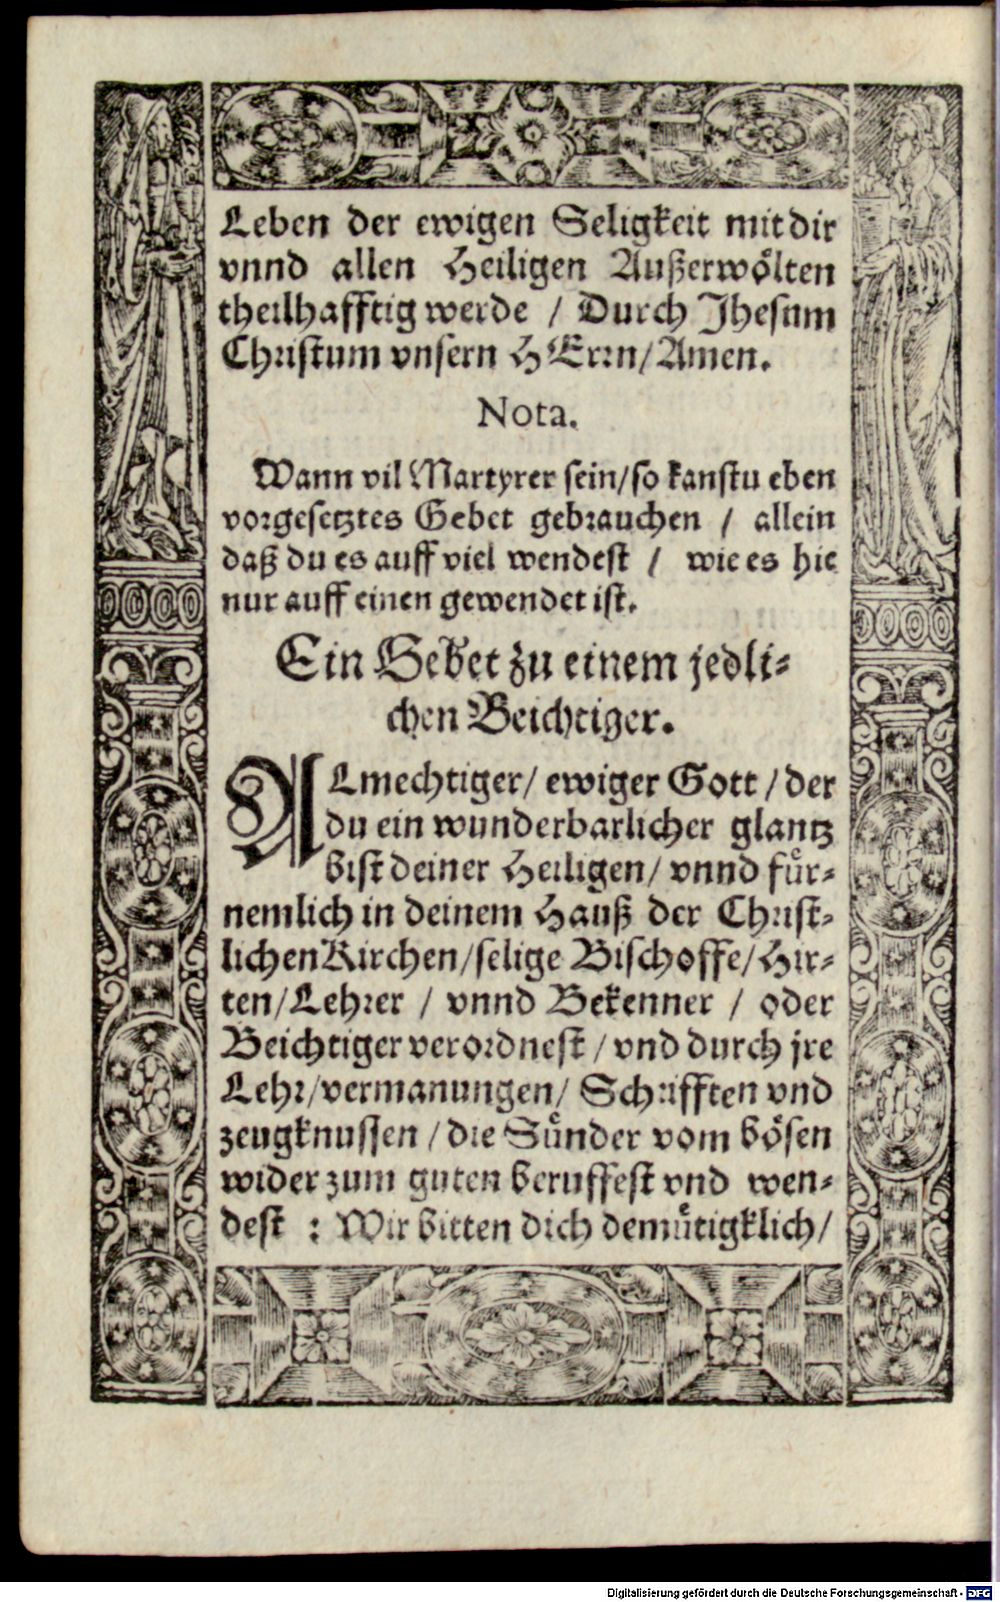 Leben der ewigen Seligkeit mit dir
vnnd allen Heiligen Außerwölten
theilhafftig werde / Durch Jhesum
Christum vnsern HErrn/Amen.
Nota.
Wann vil Martyrer sein/so kanstu eben
vorgesetztes Gebet gebrauchen / allein
daß du es auff viel wendest / wie es hie
nur auff einen gewendet ist.
Ein Gebet zu einem jedli-
chen Beichtiger.
ALmechtiger/ ewiger Gott / der
du ein wunderbarlicher glantz
bist deiner Heiligen/ vnnd für-
nemlich in deinem Hauß der Christ-
lichen Kirchen/selige Bischoffe/Hir-
ten/Lehrer / vnnd Bekenner / oder
Beichtiger verordnest / vnd durch jre
Lehr/vermanungen/ Schrifften vnd
zeugknussen /die Sünder vom bösen
wider zum guten beruffest vnd wen-
dest : Wir bitten dich demütigklich/
Digitalisierung gefördert durch die Deutsche Forschungsgemeinschaft - DFG